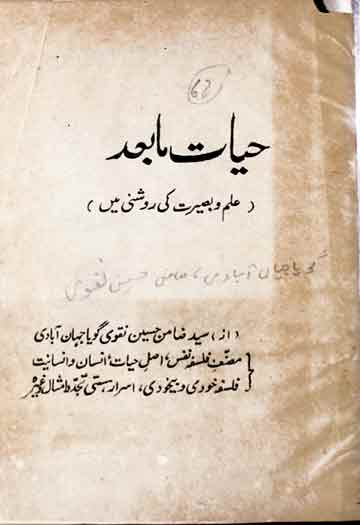 62
حیات ما بعد
(علم و بصیرت کی روشنی میں)
گویا جہاں آبادی، ضامن حسین نقوی
(از) سید ضامن حسین نقوی گویا جہان آبادی
مصنف فلسفہ نفس، اصل حیات، انسان و انسانیت
فلسفہ خودی و بیخودی، اسرار ہستی، تجدد امثال وغیرہ